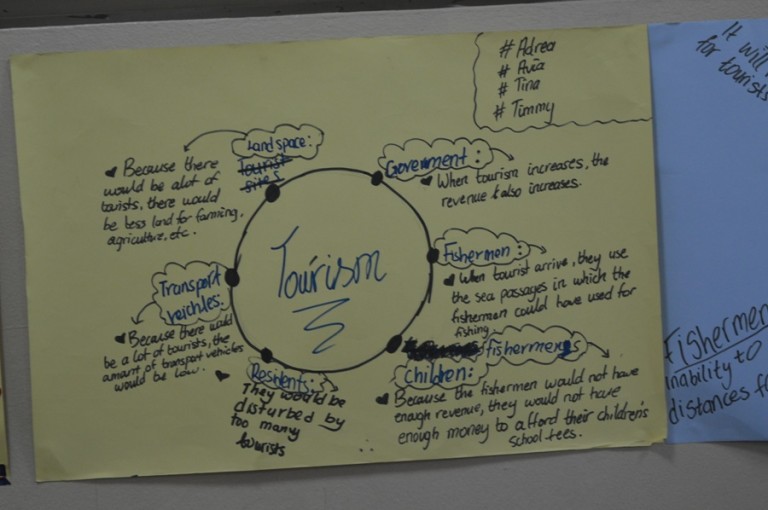 # Adrea
# Avia
# Tina
# Timmy
Landspace:
tourist
sites
♥ Because there
would be alot of
tourists, there would
be less land for farming,
agriculture, etc.
Goverment:
♥ When tourism increases, the
revenue also increases.
Fishermen:
♥ When tourist arrive, they use
the sea passages in which the
fishermen could have used for
fishing
fishermens
children:
♥ Because the fishermen would not have
enough revenue, they would not have
enough money to afford their children's
school fees.
Residents:
♥ They would be
disturbed by
too many
tourists
Transport
veichles:
♥ Because there would
be a lot of tourists, the
amount of transport vehicles
would be low.
Tourism
It will
for tourists
Fishermen
inability to
distances f